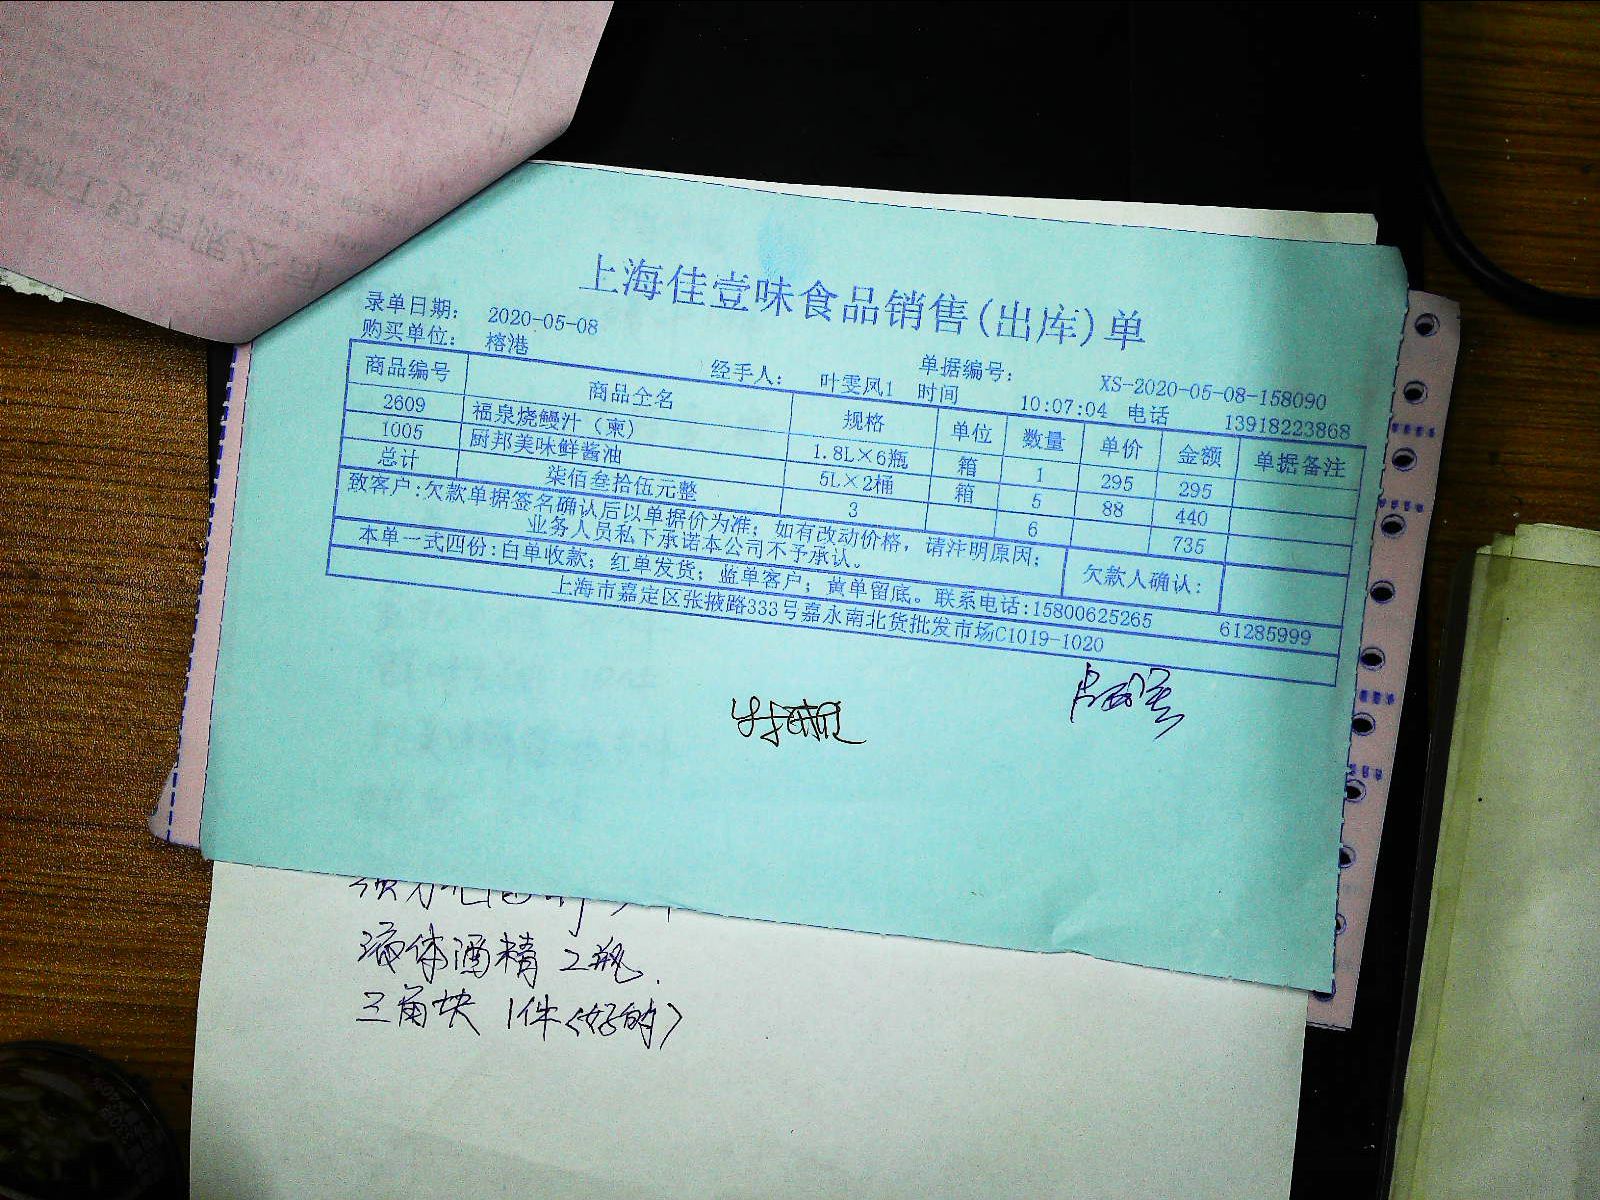 上海佳壹味食品销售(出库)单
录单日期： 2020-05-08 单据编号： XS-2020-05-08-158090
购买单位： 榕港 经手人： 叶雯凤1 时间 10:07:04 电话 13918223868
商品编号 商品全名 规格 单位 数量 单价 金额 单据备注
2609 福泉烧鳗汁（東） 1.8L×6瓶 箱 1 295 295
1005 厨邦美味鲜酱油 5L×2桶 箱 5 88 440
总计 柒佰叁拾伍元整 3 6 735
致客户:欠款单据签名确认后以单据价为准；如有改动价格，请注明原因；
业务人员私下承诺本公司不予承认。 欠款人确认：
本单一式四份:白单收款；红单发货；蓝单客户；黄单留底。联系电话:15800625265 61285999
上海市嘉定区张掖路333号嘉永南北货批发市场C1019-1020
液体酒精 2瓶.
三角块 1件(好的)